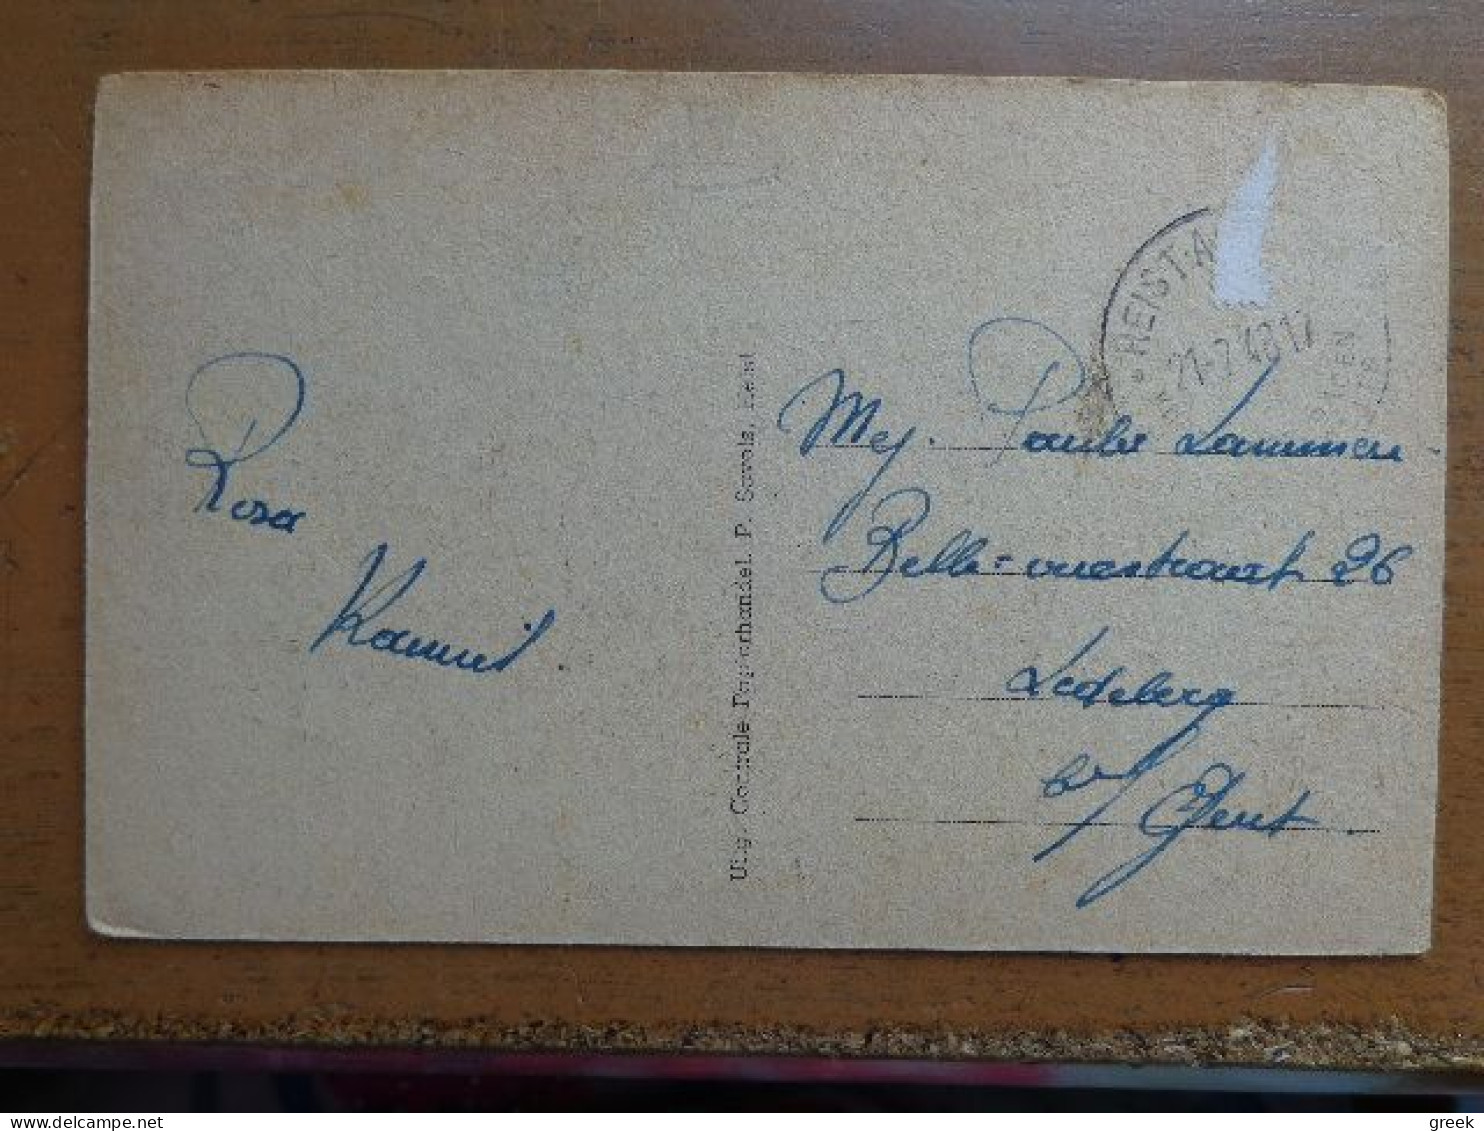 Rosa
Kamiel.
Uitg. Centrale Papierhandel. P. Savels, Heist
HEIST-A
21-7 17
Mej. Paula Lammen
Belle-vuestraat 26
Ledeberg
b/ Gent.
greek